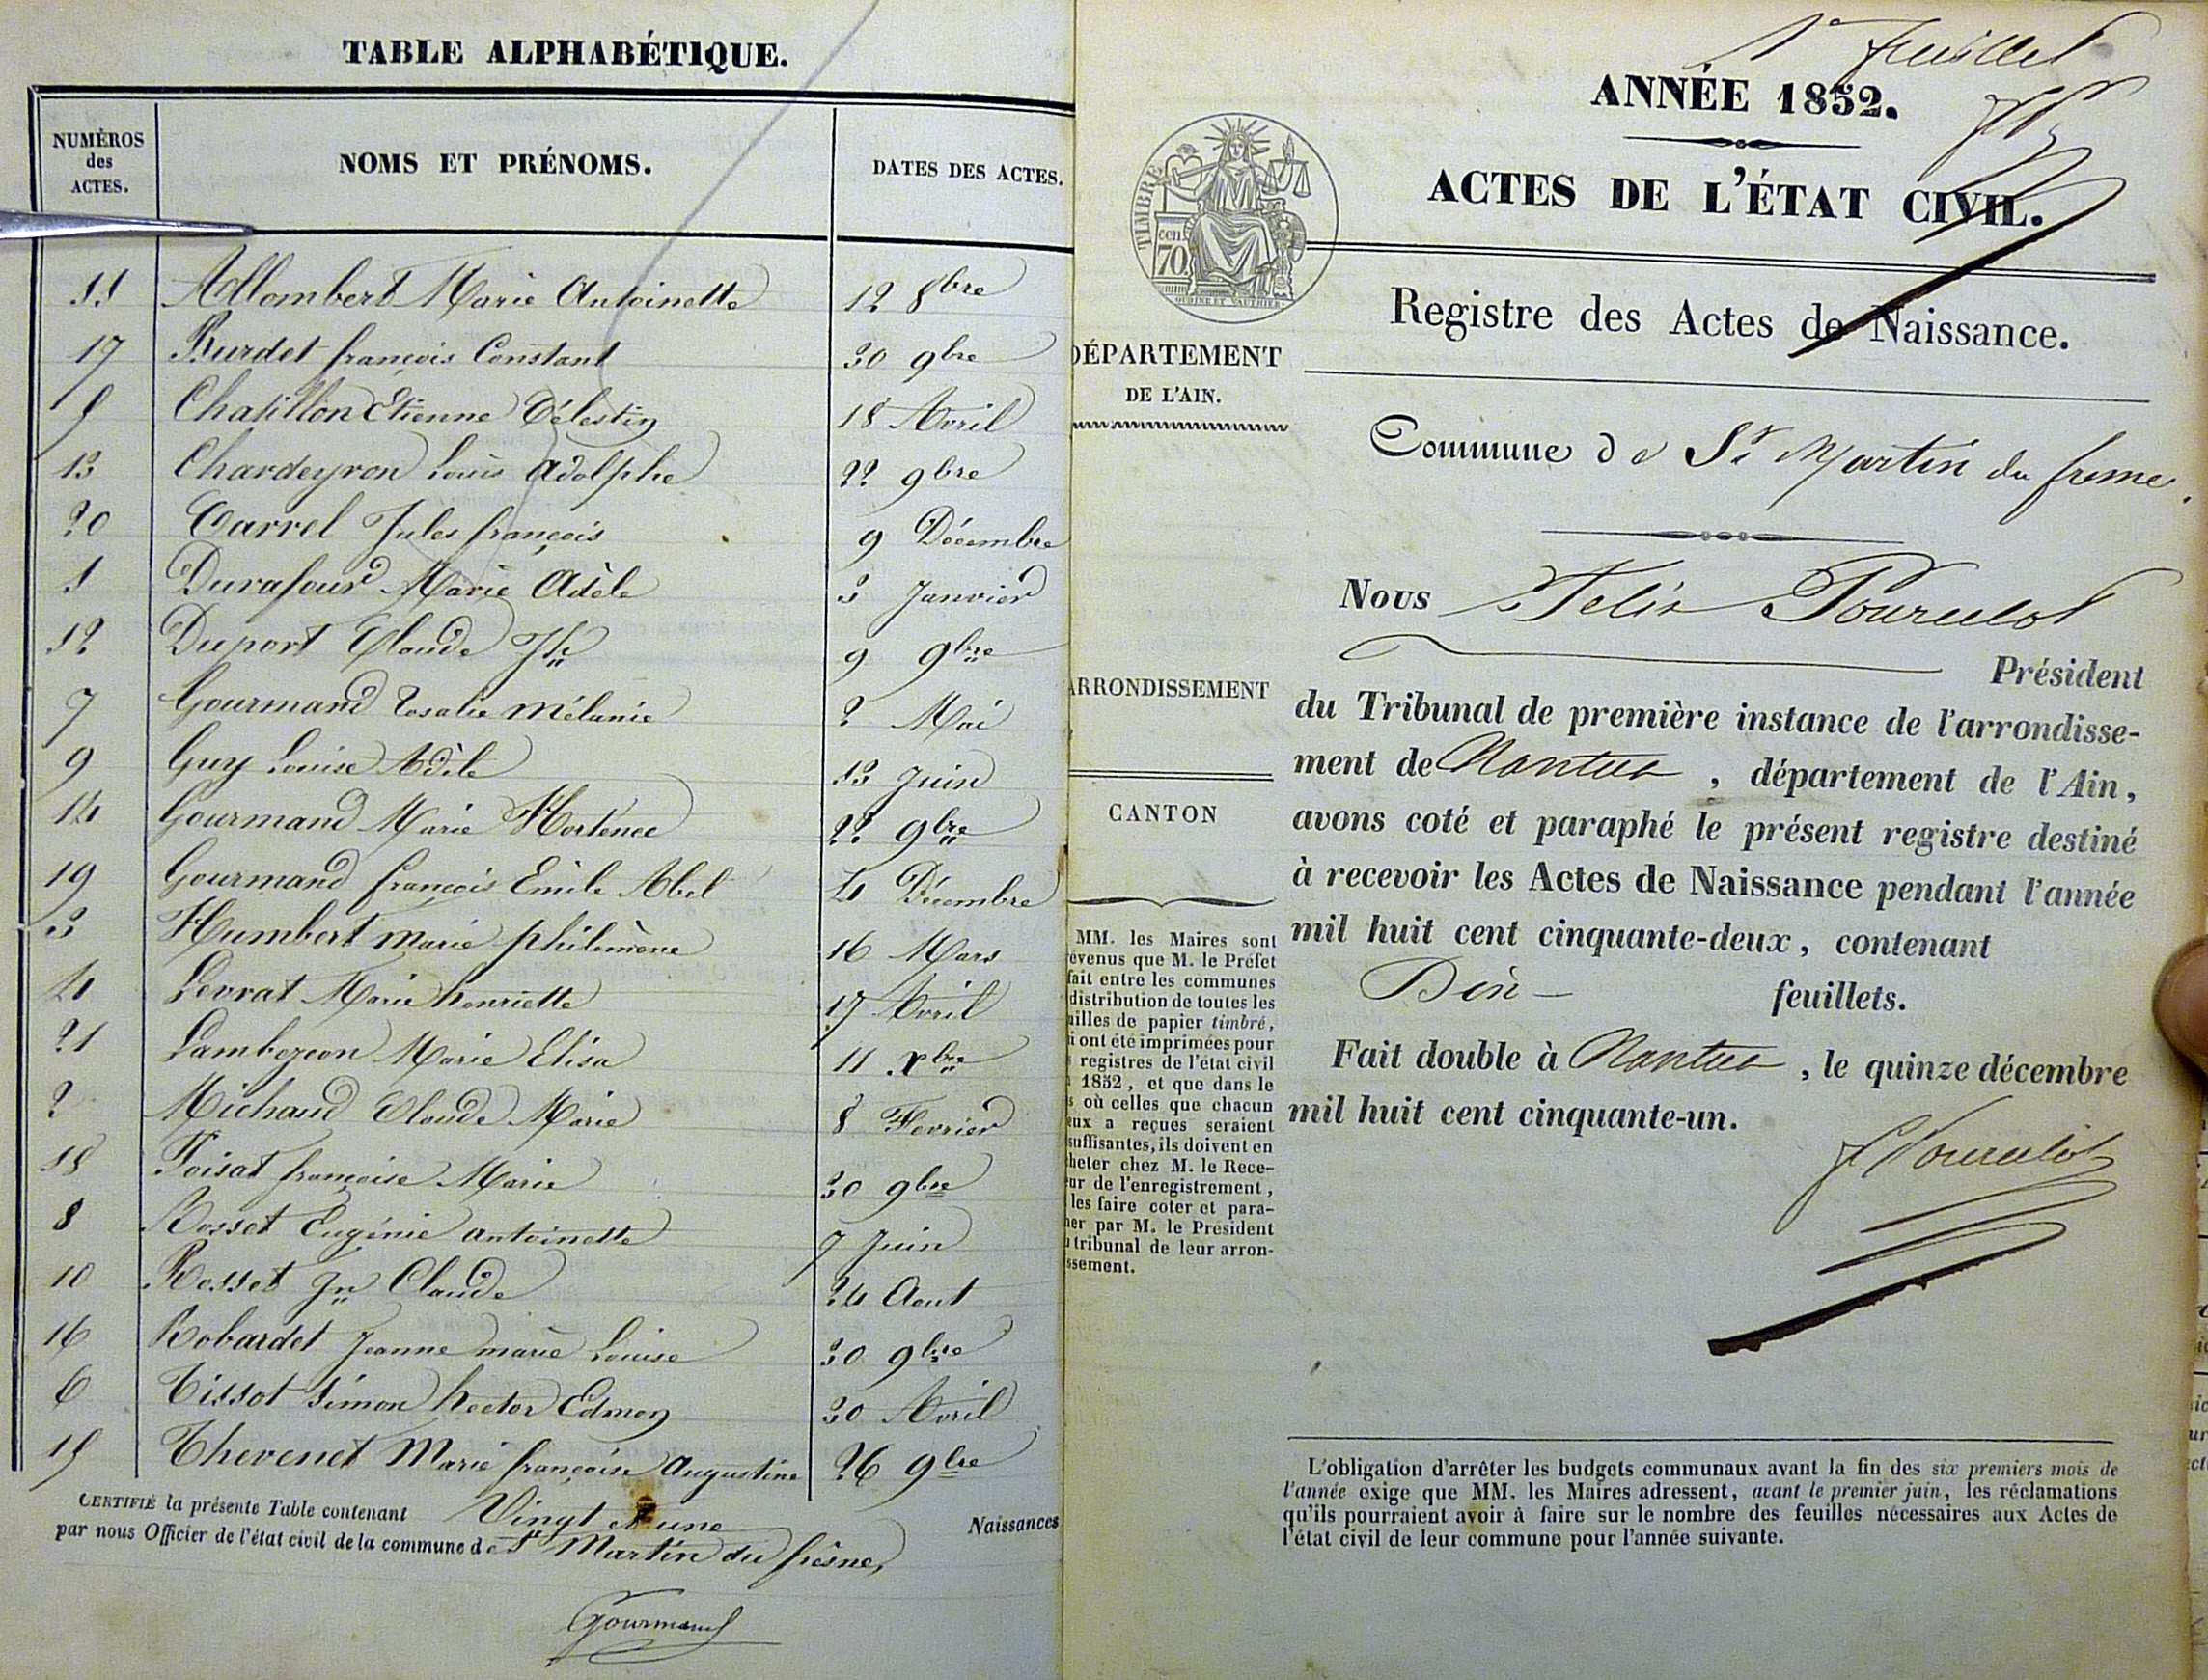 TABLE ALPHABÉTIQUE.
NUMÉROS
des
ACTES.
NOMS ET PRÉNOMS.
DATES DES ACTES.
11 Allombert Marie Antoinette 12 8bre
17 Burdet françois Constant 30 9bre
5 Chatillon Etienne Célestin 18 Avril
13 Chardeyron Louis Adolphe 22 9bre
20 Carrel Jules françois 9 Décembre
1 Durafour Marie Adèle 3 Janvier
12 Duport Claude Jh 9 9bre
7 Gourmand Rosalie Mélanie 2 Mai
9 Guy Louise Adèle 13 Juin
14 Gourmand Marie Horténce 22 9bre
19 Gourmand françois Emile Abel 4 Décembre
3 Humbert marie philomène 16 Mars
4 Levrat Marie henriette 17 Avril
21 Lambezeon Marie Elisa 11 Xbre
2 Michaud Claude Marie 8 Fevrier
18 Poisat françoise Marie 30 9bre
8 Rosset Eugénie antoinette 7 Juin
10 Rosset Jn Claude 24 Aout
16 Robardet Jeanne marie Louise 30 9bre
6 Tissot Simon hector Edmon 30 Avril
15 Thevenet Marie françoise Augustine 26 9bre
CERTIFIÉ la présente Table contenant Vingt et une Naissances
par nous Officier de l'état civil de la commune de St Martin du frêsne,
Gourmand
1er feuillet
ANNÉE 1852.
ACTES DE L'ÉTAT CIVIL.
TIMBRE
cen.
70
OUDINÉ ET VAUTHIER
Registre des Actes de Naissance.
DÉPARTEMENT
DE L'AIN.
Commune de St Martin du fresne.
Nous Felix Pourcelot
Président
ARRONDISSEMENT
du Tribunal de première instance de l'arrondisse-
ment de Nantua, département de l'Ain,
CANTON
avons coté et paraphé le présent registre destiné
à recevoir les Actes de Naissance pendant l'année
mil huit cent cinquante-deux, contenant
Dix - feuillets.
Fait double à Nantua, le quinze décembre
mil huit cent cinquante-un.
F Pourcelot
MM. les Maires sont
évenus que M. le Préfet
fait entre les communes
distribution de toutes les
uilles de papier timbré,
i ont été imprimées pour
s registres de l'état civil
1852, et que dans le
s où celles que chacun
eux a reçues seraient
suffisantes, ils doivent en
heter chez M. le Rece-
ur de l'enregistrement,
les faire coter et para-
her par M. le Président
u tribunal de leur arron-
ssement.
L'obligation d'arrêter les budgets communaux avant la fin des six premiers mois de
l'année exige que MM. les Maires adressent, avant le premier juin, les réclamations
qu'ils pourraient avoir à faire sur le nombre des feuilles nécessaires aux Actes de
l'état civil de leur commune pour l'année suivante.